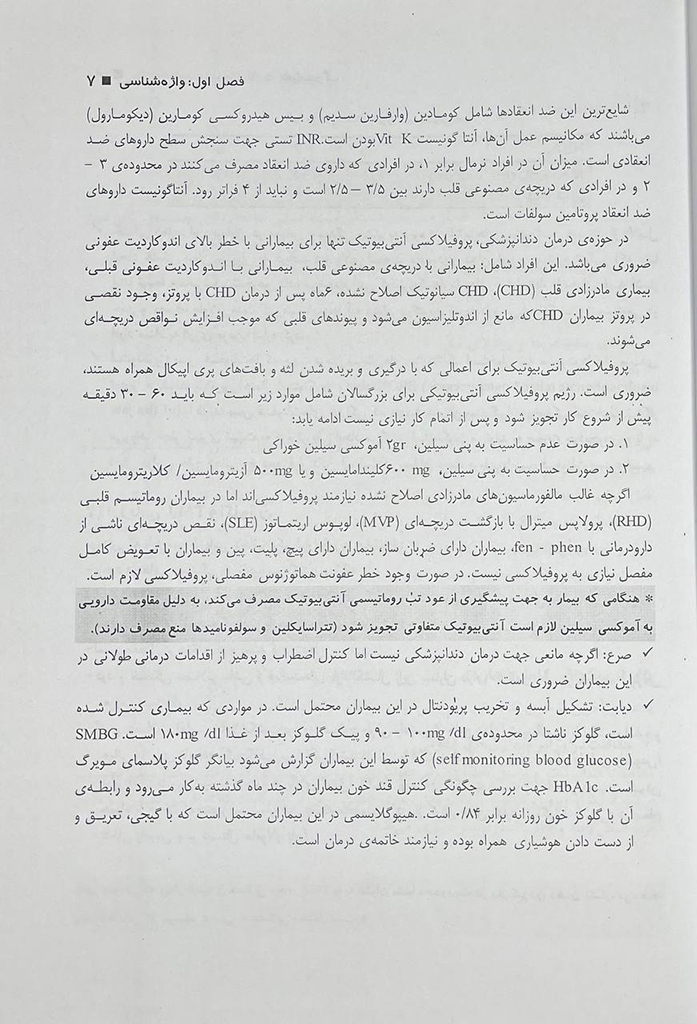 فصل اول: واژه‌شناسی ■ ۷
شایع‌ترین این ضد انعقادها شامل کومادین (وارفارین سدیم) و بیس هیدروکسی کومارین (دیکومارول)
می‌باشند که مکانیسم عمل آن‌ها، آنتا گونیست Vit K بودن است.INR تستی جهت سنجش سطح داروهای ضد
انعقادی است. میزان آن در افراد نرمال برابر ۱، در افرادی که داروی ضد انعقاد مصرف می‌کنند در محدوده‌ی ۳ –
۲ و در افرادی که دریچه‌ی مصنوعی قلب دارند بین ۳/۵ – ۲/۵ است و نباید از ۴ فراتر رود. آنتاگونیست داروهای
ضد انعقاد پروتامین سولفات است.
در حوزه‌ی درمان دندانپزشکی، پروفیلاکسی آنتی‌بیوتیک تنها برای بیمارانی با خطر بالای اندوکاردیت عفونی
ضروری می‌باشد. این افراد شامل: بیمارانی با دریچه‌ی مصنوعی قلب، بیمارانی با اندوکاردیت عفونی قبلی،
بیماری مادرزادی قلب (CHD)، CHD سیانوتیک اصلاح نشده، ۶ماه پس از درمان CHD با پروتز، وجود نقصی
در پروتز بیماران CHDکه مانع از اندوتلیزاسیون می‌شود و پیوندهای قلبی که موجب افزایش نواقص دریچه‌ای
می‌شوند.
پروفیلاکسی آنتی‌بیوتیک برای اعمالی که با درگیری و بریده شدن لثه و بافت‌های پری اپیکال همراه هستند،
ضروری است. رژیم پروفیلاکسی آنتی‌بیوتیکی برای بزرگسالان شامل موارد زیر است که باید ۶۰ – ۳۰ دقیقه
پیش از شروع کار تجویز شود و پس از اتمام کار نیازی نیست ادامه یابد:
۱. در صورت عدم حساسیت به پنی سیلین، ۲gr آموکسی سیلین خوراکی
۲. در صورت حساسیت به پنی سیلین، ۶۰۰ mgکلیندامایسین و یا ۵۰۰mg آزیترومایسین/ کلاریترومایسین
اگرچه غالب مالفورماسیون‌های مادرزادی اصلاح نشده نیازمند پروفیلاکسی‌اند اما در بیماران روماتیسم قلبی
(RHD)، پرولاپس میترال با بازگشت دریچه‌ای (MVP)، لوپوس اریتماتوز (SLE)، نقص دریچه‌ای ناشی از
دارودرمانی با fen - phen، بیماران دارای ضربان ساز، بیماران دارای پیچ، پلیت، پین و بیماران با تعویض کامل
مفصل نیازی به پروفیلاکسی نیست. در صورت وجود خطر عفونت هماتوژنوس مفصلی، پروفیلاکسی لازم است.
* هنگامی که بیمار به جهت پیشگیری از عود تب روماتیسمی آنتی‌بیوتیک مصرف می‌کند، به دلیل مقاومت دارویی
به آموکسی سیلین لازم است آنتی‌بیوتیک متفاوتی تجویز شود (تتراسایکلین و سولفونامیدها منع مصرف دارند).
✓ صرع: اگرچه مانعی جهت درمان دندانپزشکی نیست اما کنترل اضطراب و پرهیز از اقدامات درمانی طولانی در
این بیماران ضروری است.
✓ دیابت: تشکیل آبسه و تخریب پریودنتال در این بیماران محتمل است. در مواردی که بیماری کنترل شده
است، گلوکز ناشتا در محدوده‌ی ۱۰۰mg /dl – ۹۰ و پیک گلوکز بعد از غذا ۱۸۰mg /dl است. SMBG
(self monitoring blood glucose) که توسط این بیماران گزارش می‌شود بیانگر گلوکز پلاسمای مویرگ
است. HbA1c جهت بررسی چگونگی کنترل قند خون بیماران در چند ماه گذشته به‌کار می‌رود و رابطه‌ی
آن با گلوکز خون روزانه برابر ۰/۸۴ است. .هیپوگلایسمی در این بیماران محتمل است که با گیجی، تعریق و
از دست دادن هوشیاری همراه بوده و نیازمند خاتمه‌ی درمان است.